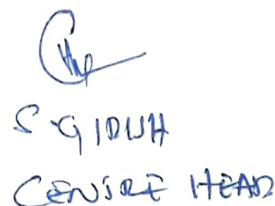 S. GIDWH
CENTRE HEAD